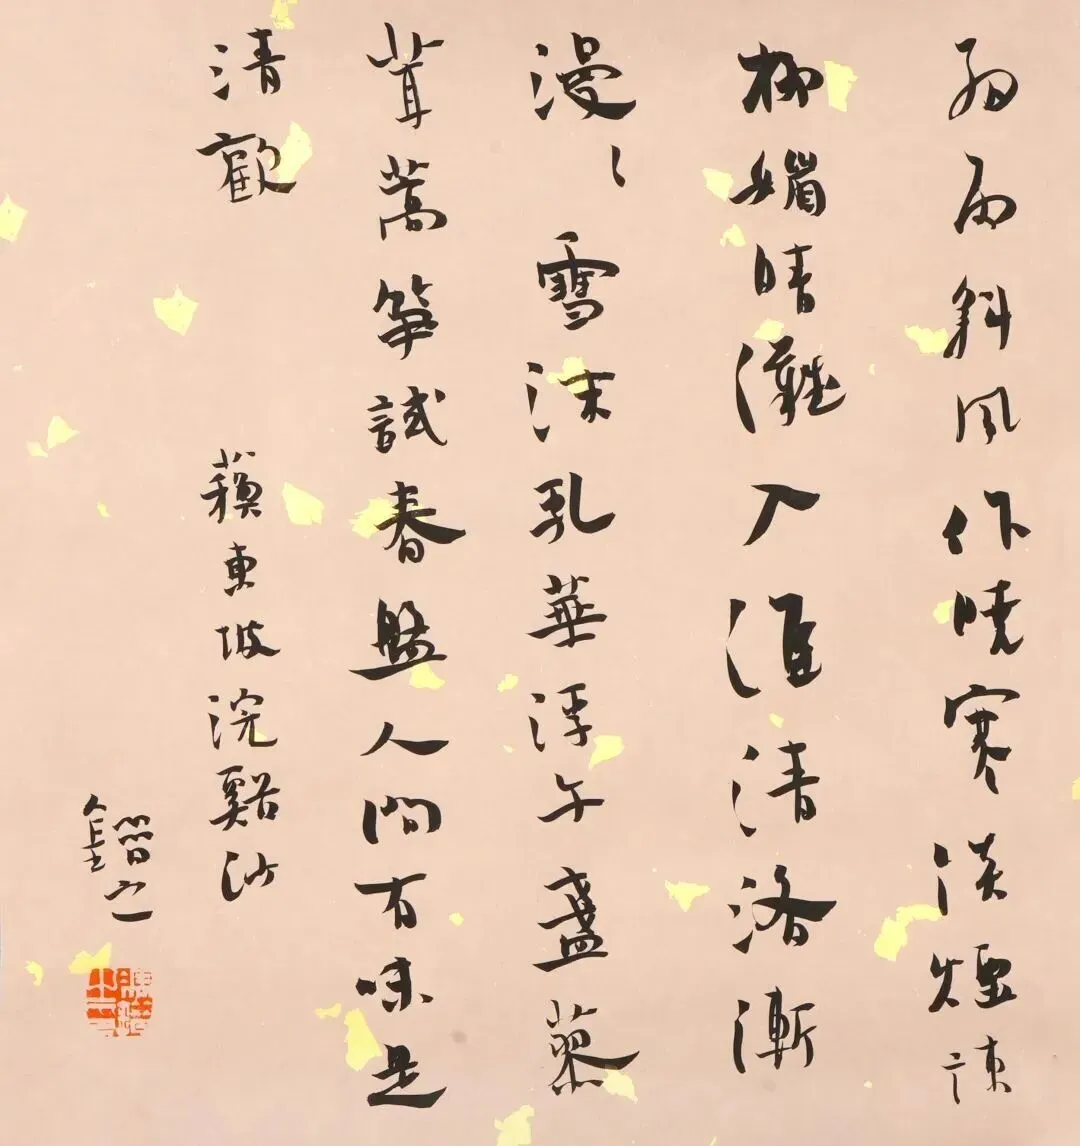 細雨斜風作曉寒淡煙疎
柳媚晴灘入淮清洛漸
漫〻雪沫乳華浮午盞蓼
茸蒿筍試春盤人間有味是
清歡 蘇東坡浣谿沙
之